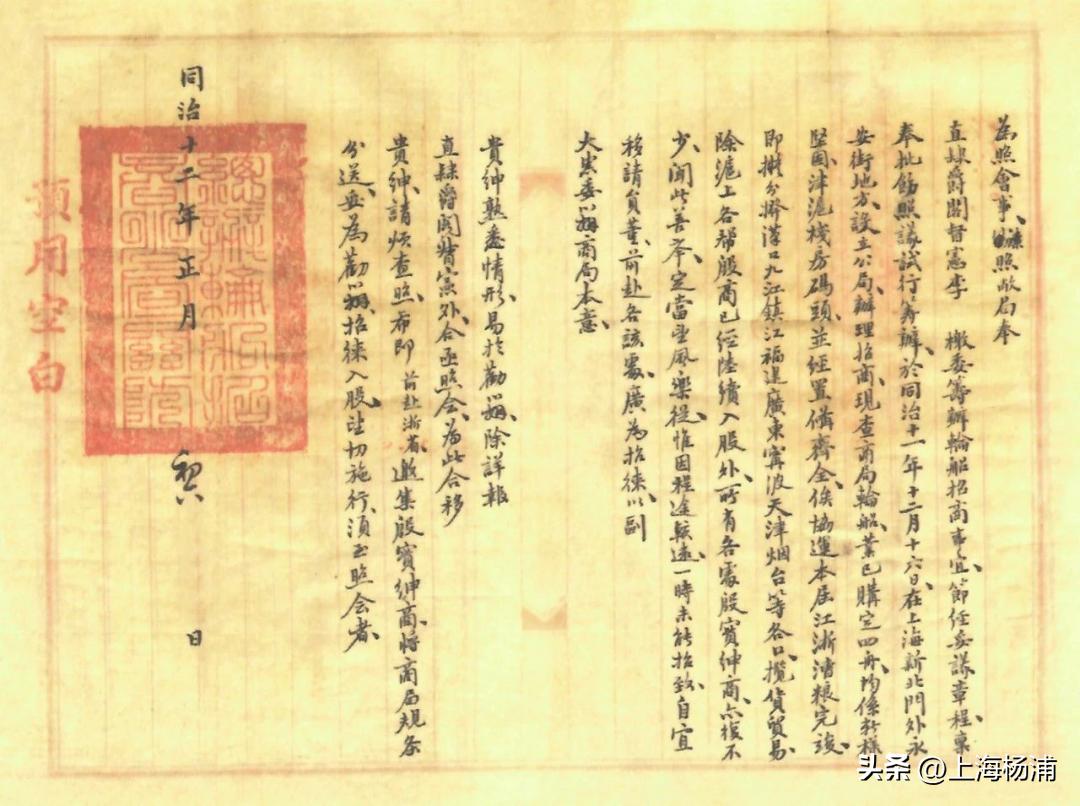 為照會事、照得敝局奉
直隸爵閣督憲李　檄委籌辦輪船招商事宜、節經妥議章程稟
奉批飭照議試行籌辦、於同治十一年十二月十六日、在上海新北門外永
安街地方設立公局、辦理招商、現查商局輪船、業已購定四舟、均係新樣
堅固、津滬棧房碼頭、並經置備齊全、俟協運本屆江浙漕糧完竣、
即擬分撥漢口九江鎮江福建廣東寧波天津烟台等各口攬貨貿易、
除滬上各幫股商已經陸續入股外、所有各處殷實紳商、亦復不
少、聞此善举、定當望風樂從、惟因程途較遠、一時未能招致、自宜
移請貴董、前赴各該處、廣為招徠、以副
大憲委辦商局本意、
貴紳熟悉情形、易於勸辦、除詳報
直隸爵閣督憲外、合亟照會、為此合移
貴紳、請煩查照、希即前赴浙省、邀集殷實紳商、將商局規条
分送、妥為勸辦、招徠入股、望切施行、須至照会者、
同治十二年正月　初八　日
預用空白
头条 @上海杨浦